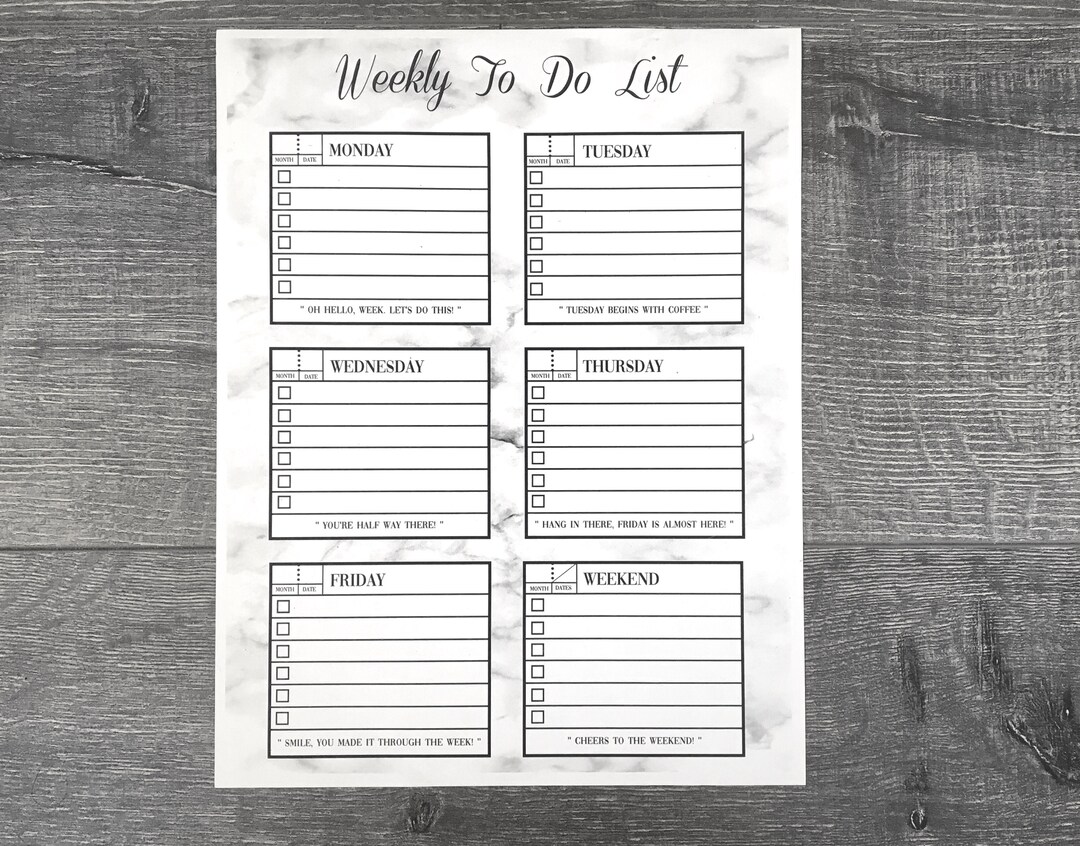 Weekly To Do List
MONTH DATE MONDAY
" OH HELLO, WEEK. LET'S DO THIS! "
MONTH DATE TUESDAY
" TUESDAY BEGINS WITH COFFEE "
MONTH DATE WEDNESDAY
" YOU'RE HALF WAY THERE! "
MONTH DATE THURSDAY
" HANG IN THERE, FRIDAY IS ALMOST HERE! "
MONTH DATE FRIDAY
" SMILE, YOU MADE IT THROUGH THE WEEK! "
MONTH DATES WEEKEND
" CHEERS TO THE WEEKEND! "